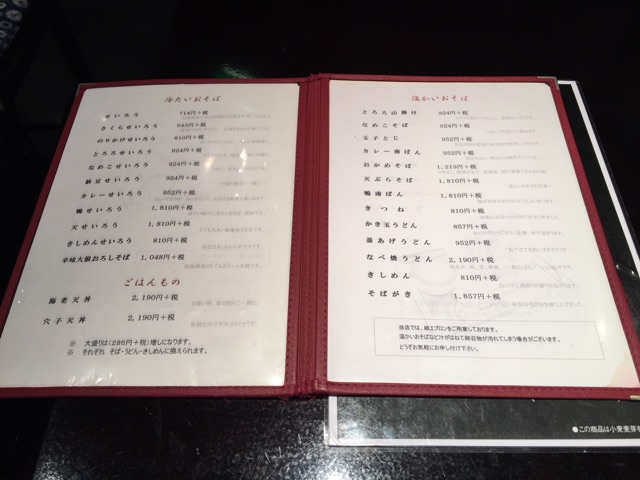 冷たいおそば
せいろう 714円+税
さくらせいろう 843円+税
のりかけせいろう 810円+税
とろろせいろう 924円+税
なめこせいろう 924円+税
納豆せいろう 924円+税
カレーせいろう 952円+税
鴨せいろう 1,810円+税
天せいろう 1,810円+税
きしめんせいろう 810円+税
辛味大根おろしそば 1,048円+税
ごはんもの
海老天丼 2,190円+税
穴子天丼 2,190円+税
※ 大盛りは(286円+税)増しになります。
※ それぞれ そば・うどん・きしめんに換えられます。
温かいおそば
とろろ山掛け 924円+税
なめこそば 924円+税
玉子とじ 952円+税
カレー南ばん 952円+税
おかめそば 1,219円+税
天ぷらそば 1,810円+税
鴨南ばん 1,810円+税
きつね 810円+税
かき玉うどん 857円+税
釜あげうどん 952円+税
なべ焼うどん 2,190円+税
きしめん 810円+税
そばがき 1,857円+税
当店では、紙エプロンをご用意しております。
温かいおそばなど汁がはねて御召物が汚れてしまう場合がございます。
どうぞお気軽にお申し付け下さい。
●この商品は小麦麦芽を